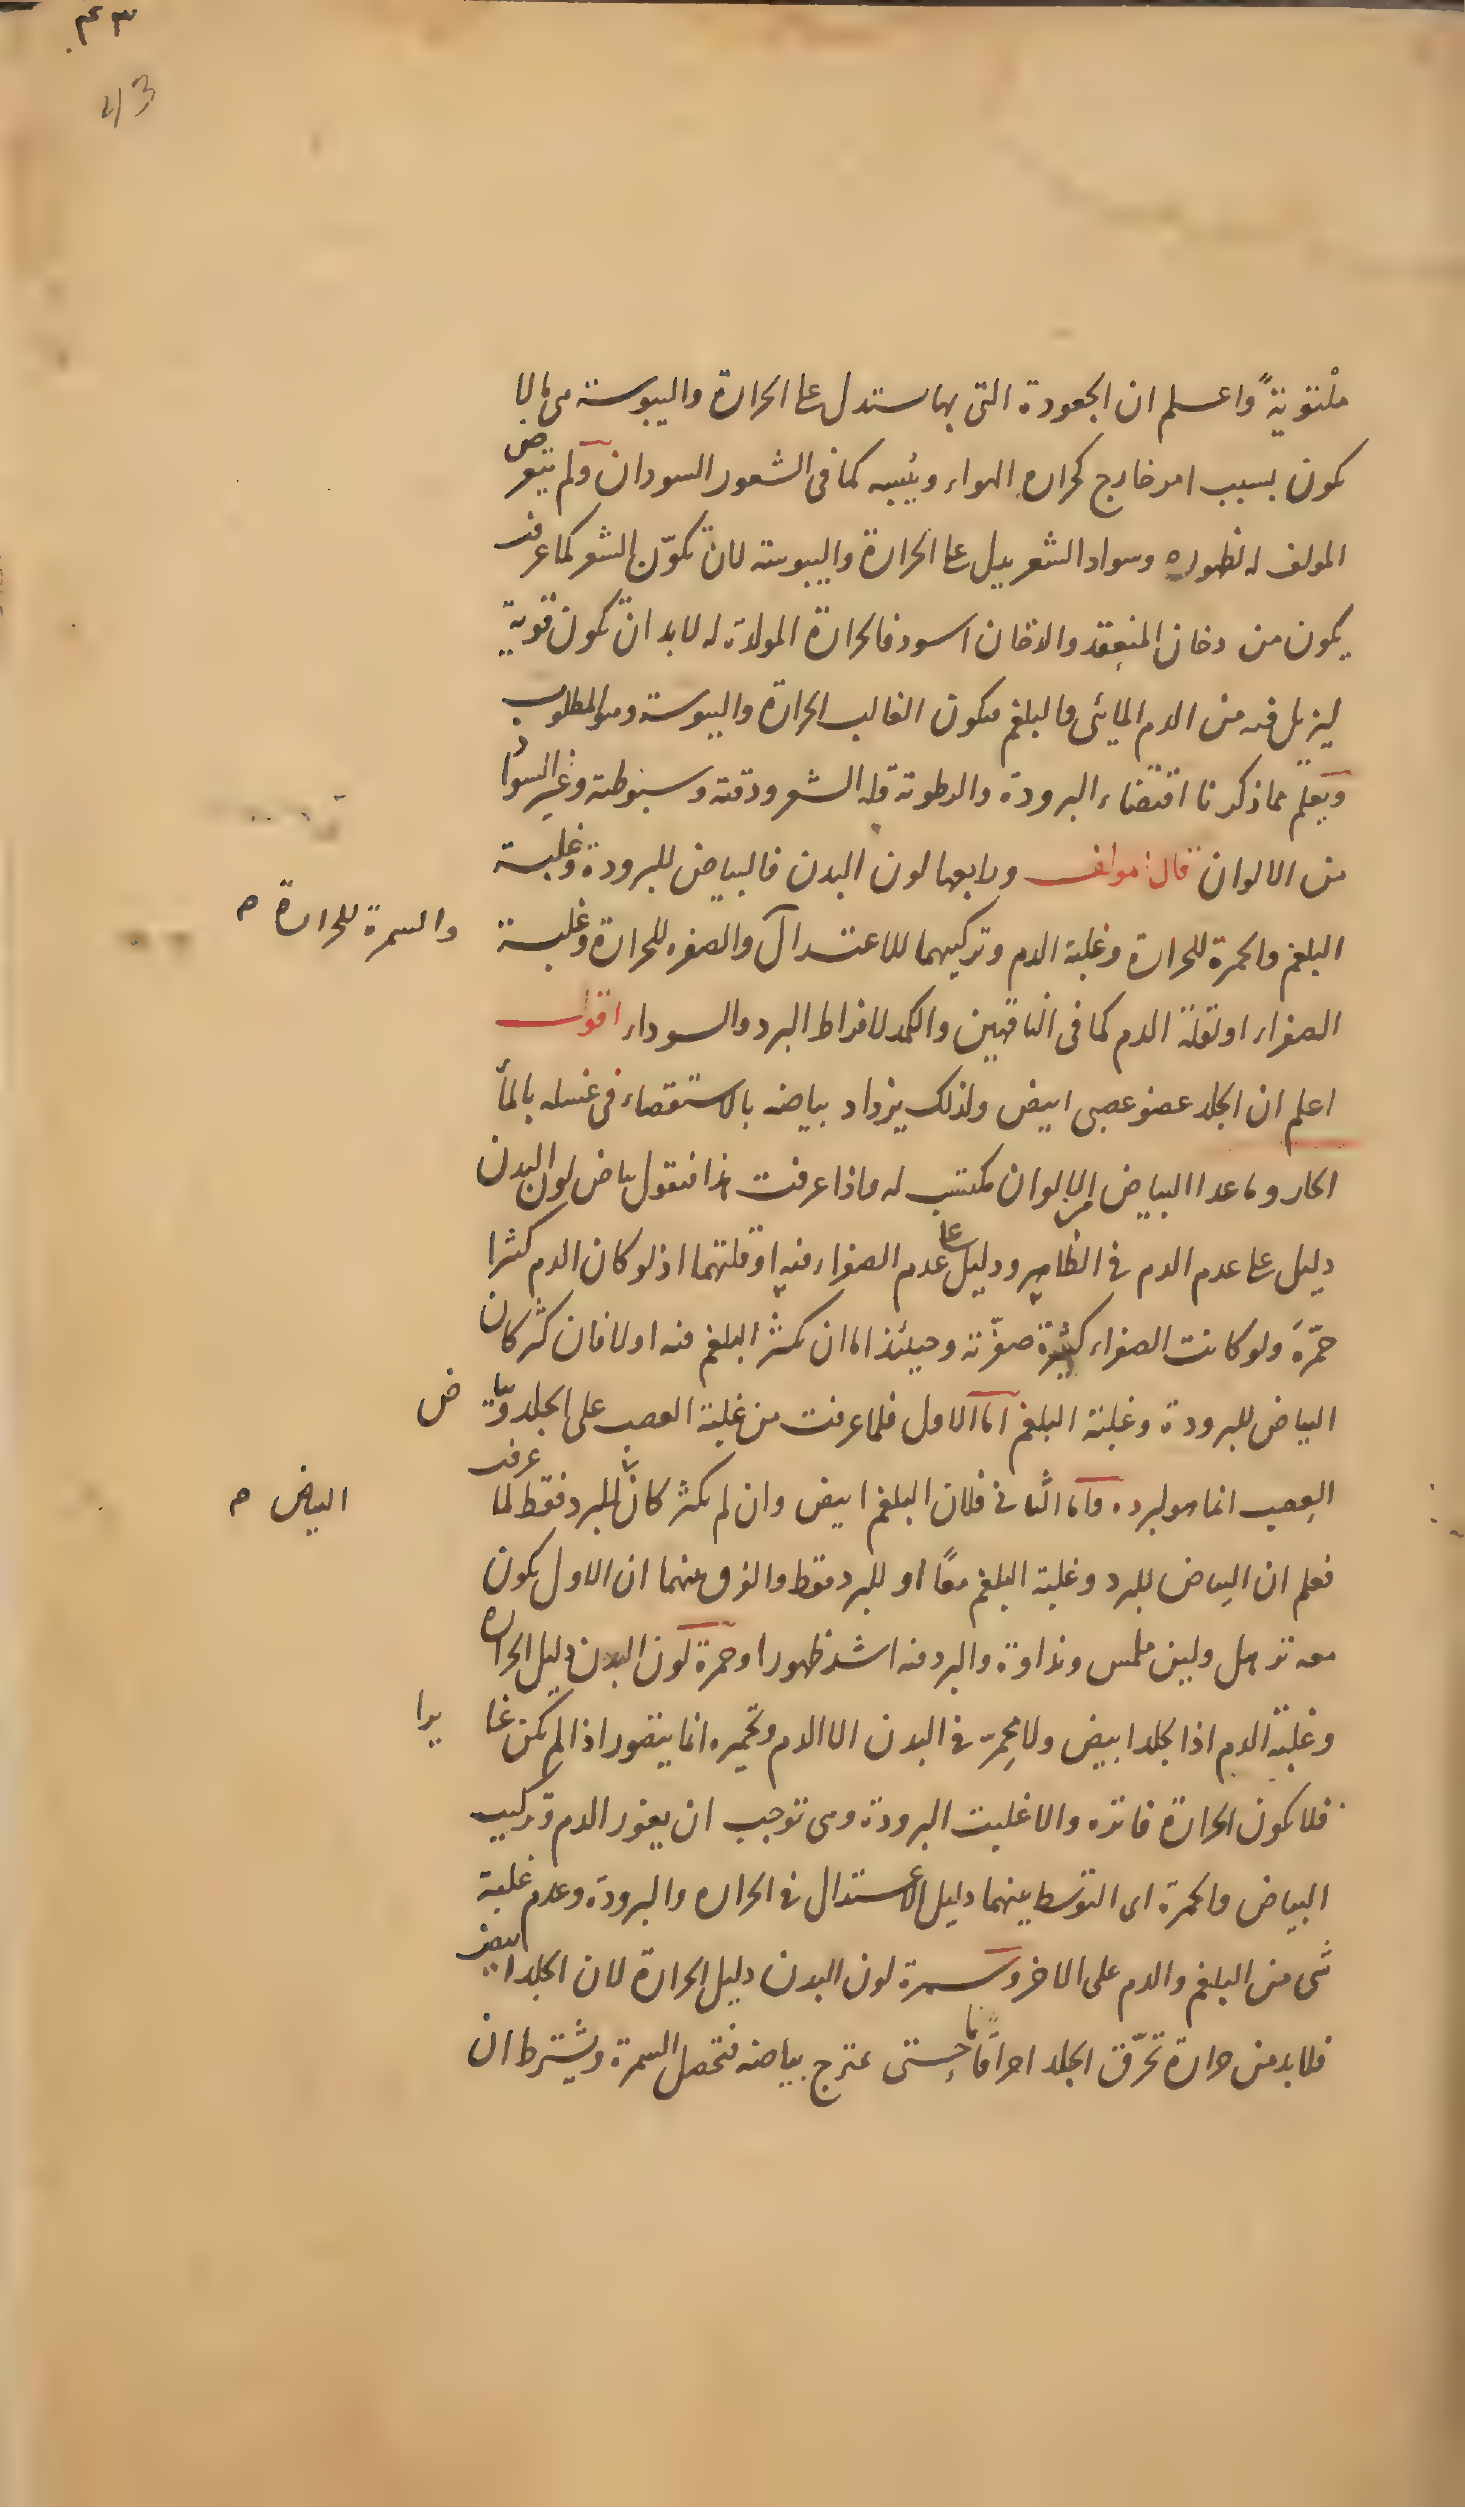 ٤٣
43
ملتوية واعلم ان الجعودة التى بها يستدل على الحرارة واليبوسة هى ما لا
يكون بسبب امر خارج كحرارة الهواء ويبسه كما فى الشعور السودان ولم يتعرض
المولف له لظهوره وسواد الشعر يدل على الحرارة واليبوسة لان تكوّن الشعر كما عرفت
يكون من دخان المنعقد والدخان اسود فالحرارة المولدة له لابد ان تكون قوية
ليزيل فيه من الدم المائى والبلغم فيكون الغالب الحرارة واليبوسة وهو المطلوب
ويعلم مما ذكرنا اقتضاء البرودة والرطوبة قلة الشعر ودقته وسبوطته وغير السواد
من الالوان قال المولف ورابعها لون البدن فالبياض للبرودة وغلبة
البلغم والحمرة للحرارة وغلبة الدم وتركيبهما للاعتدال والصفرة للحرارة وغلبة
والسمرة للحرارة م
الصفراء او لقلة الدم كما فى الناقهين والكمد لافراط البرد والسوداء اقول
اعلم ان الجلد عضو عصبى ابيض ولذلك يزداد بياضه بالاستقصاء فى غسله بالماء
الحار وما عدا البياض من الالوان مكتسب له واذا عرفت هذا فنقول بياض لون البدن
دليل على عدم الدم فى الظاهر ودليل على عدم الصفراء فيه او قلتهما اذ لو كان الدم كثيرا
حمّره ولو كانت الصفراء كثيرة صفّرته وحينئذ اما ان يكثر البلغم فيه اولا فان كثر كان
البياض للبرودة وغلبة البلغم اما الاول فلما عرفت من غلبة العصب على الجلد وبياض
العصب انما هو لبرده واما الثانى فلان البلغم ابيض وان لم يكثر كان للبرد فقط لما عرفت
البياض م
فعلم ان البياض للبرد وغلبة البلغم معًا او للبرد فقط والفرق بينهما ان الاول يكون
معه ترهل ولين ملمس ونداوة والبرد فيه اشد ظهورا وحمرة لون البدن دليل الحرارة
وغلبة الدم اذ الجلد ابيض ولا محمّر فى البدن الا الدم وتحميره انما يتصور اذا لم يكن غايرا
فلا يكون الحرارة فاترة والا غلبت البرودة وهى توجب ان يغور الدم وتركيب
البياض والحمرة اى التوسط بينهما دليل الاعتدال فى الحرارة والبرودة وعدم غلبة
شى من البلغم والدم على الاخر وسمرة لون البدن دليل الحرارة لان الجلد ابيض
فلابد من حرارة تحرّق الجلد احراقًا ما حتى يمتزج بياضه فتحصل السمرة ويشترط ان